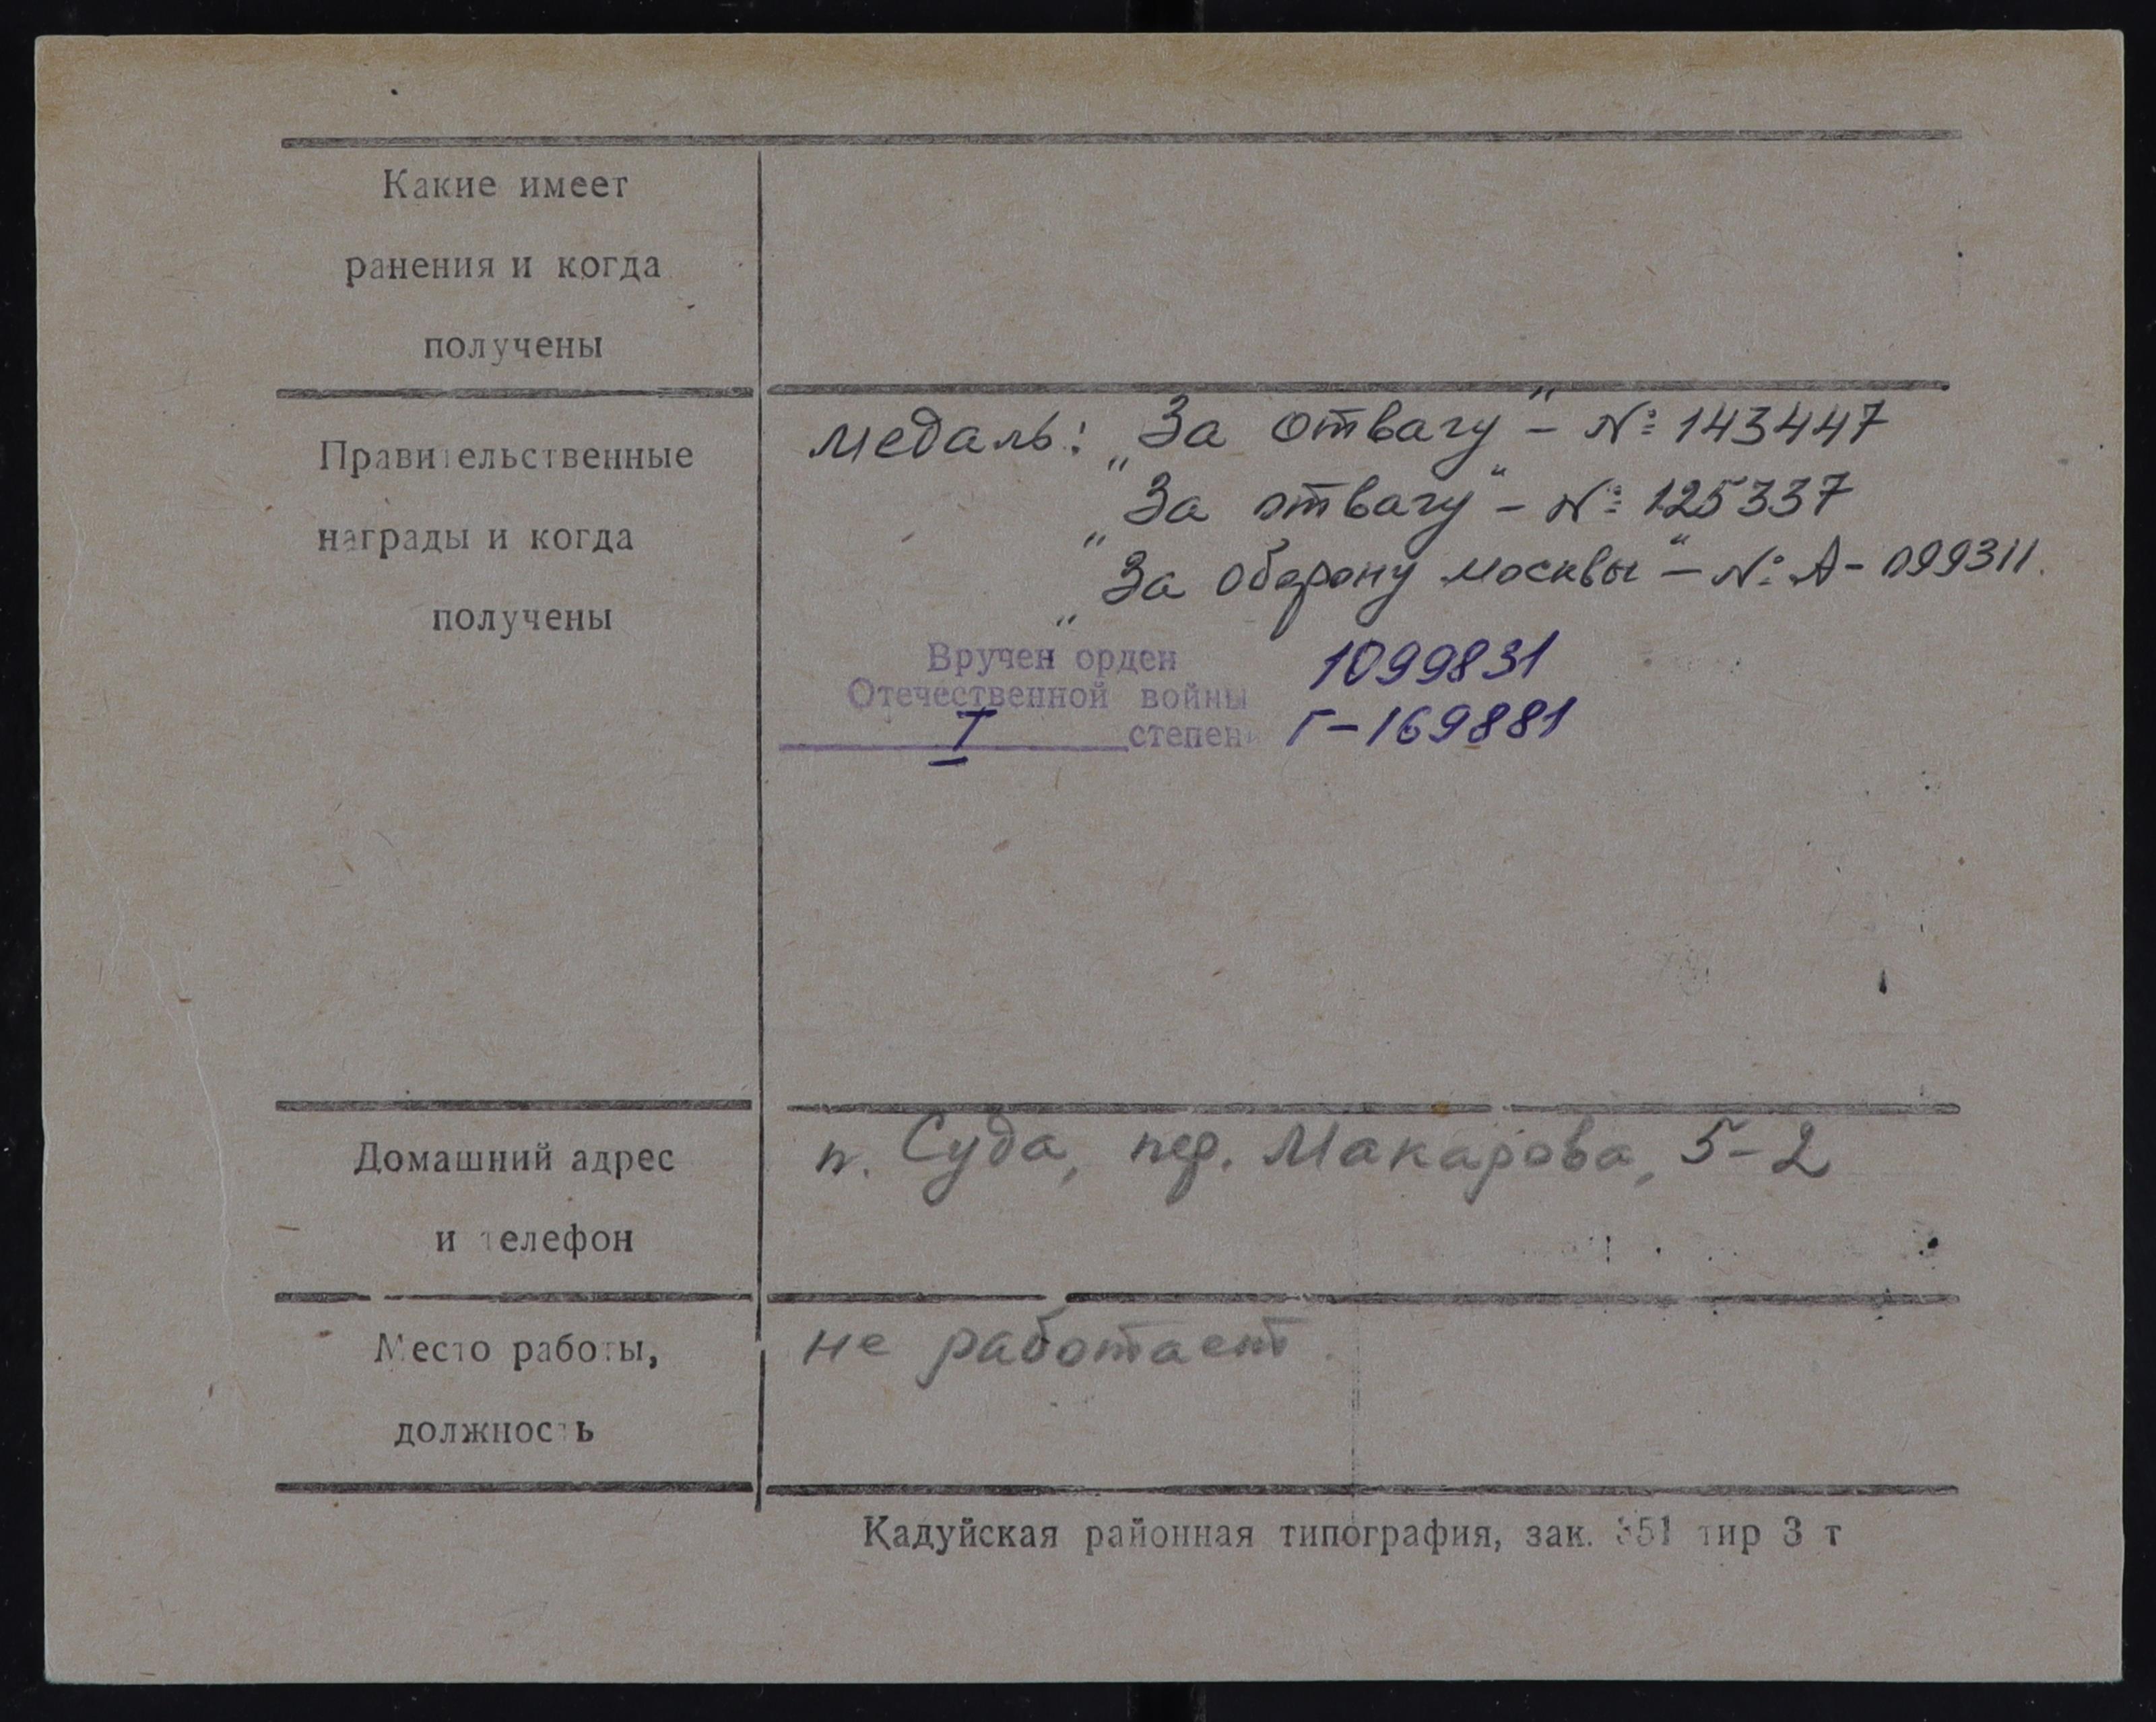 Какие имеет
ранения и когда
получены
Правительственные
награды и когда
получены
медаль: „За отвагу" - № 143447
„За отвагу" - № 125337
„За оборону москвы" - № А - 099311.
Вручен орден
Отечественной войны
I степени
1099831
Г-169881
Домашний адрес
и телефон
п. Суда, пер. Макарова, 5-2
Место работы,
должность
не работает.
Кадуйская районная типография, зак. 351 тир 3 т